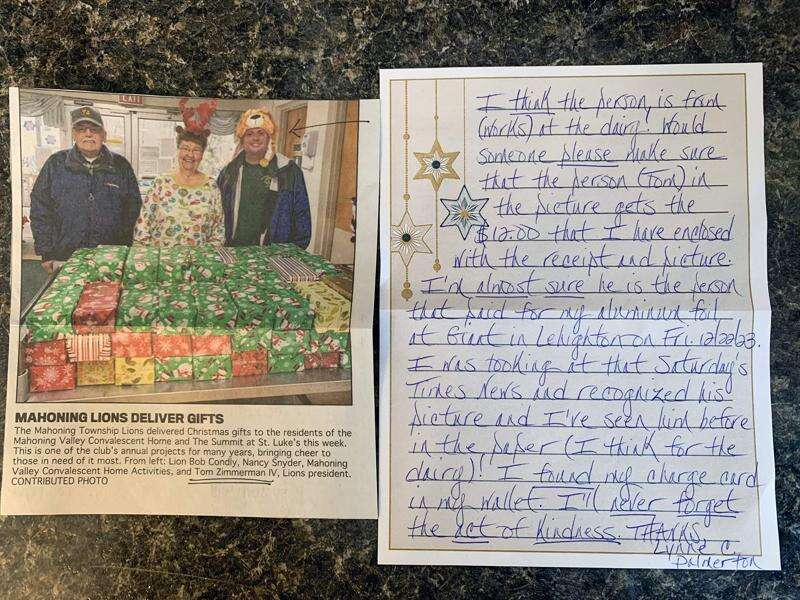 EXIT
MAHONING LIONS DELIVER GIFTS
The Mahoning Township Lions delivered Christmas gifts to the residents of the
Mahoning Valley Convalescent Home and The Summit at St. Luke's this week.
This is one of the club's annual projects for many years, bringing cheer to
those in need of it most. From left: Lion Bob Condly, Nancy Snyder, Mahoning
Valley Convalescent Home Activities, and Tom Zimmerman IV, Lions president.
CONTRIBUTED PHOTO
I think the person, is from
(works) at the dairy. Would
someone please make sure
that the person (Tom) in
the picture gets the
$12.00 that I have enclosed
with the receipt and picture.
I'm almost sure he is the person
that paid for my aluminum foil
at Giant in Lehighton on Fri. 12/22/23.
I was looking at that Saturday's
Times News and recognized his
picture and I've seen him before
in the paper (I think for the
dairy)! I found my charge card
in my wallet. I'll never forget
the act of kindness. THANKS,
Lynne C.
Palmerton